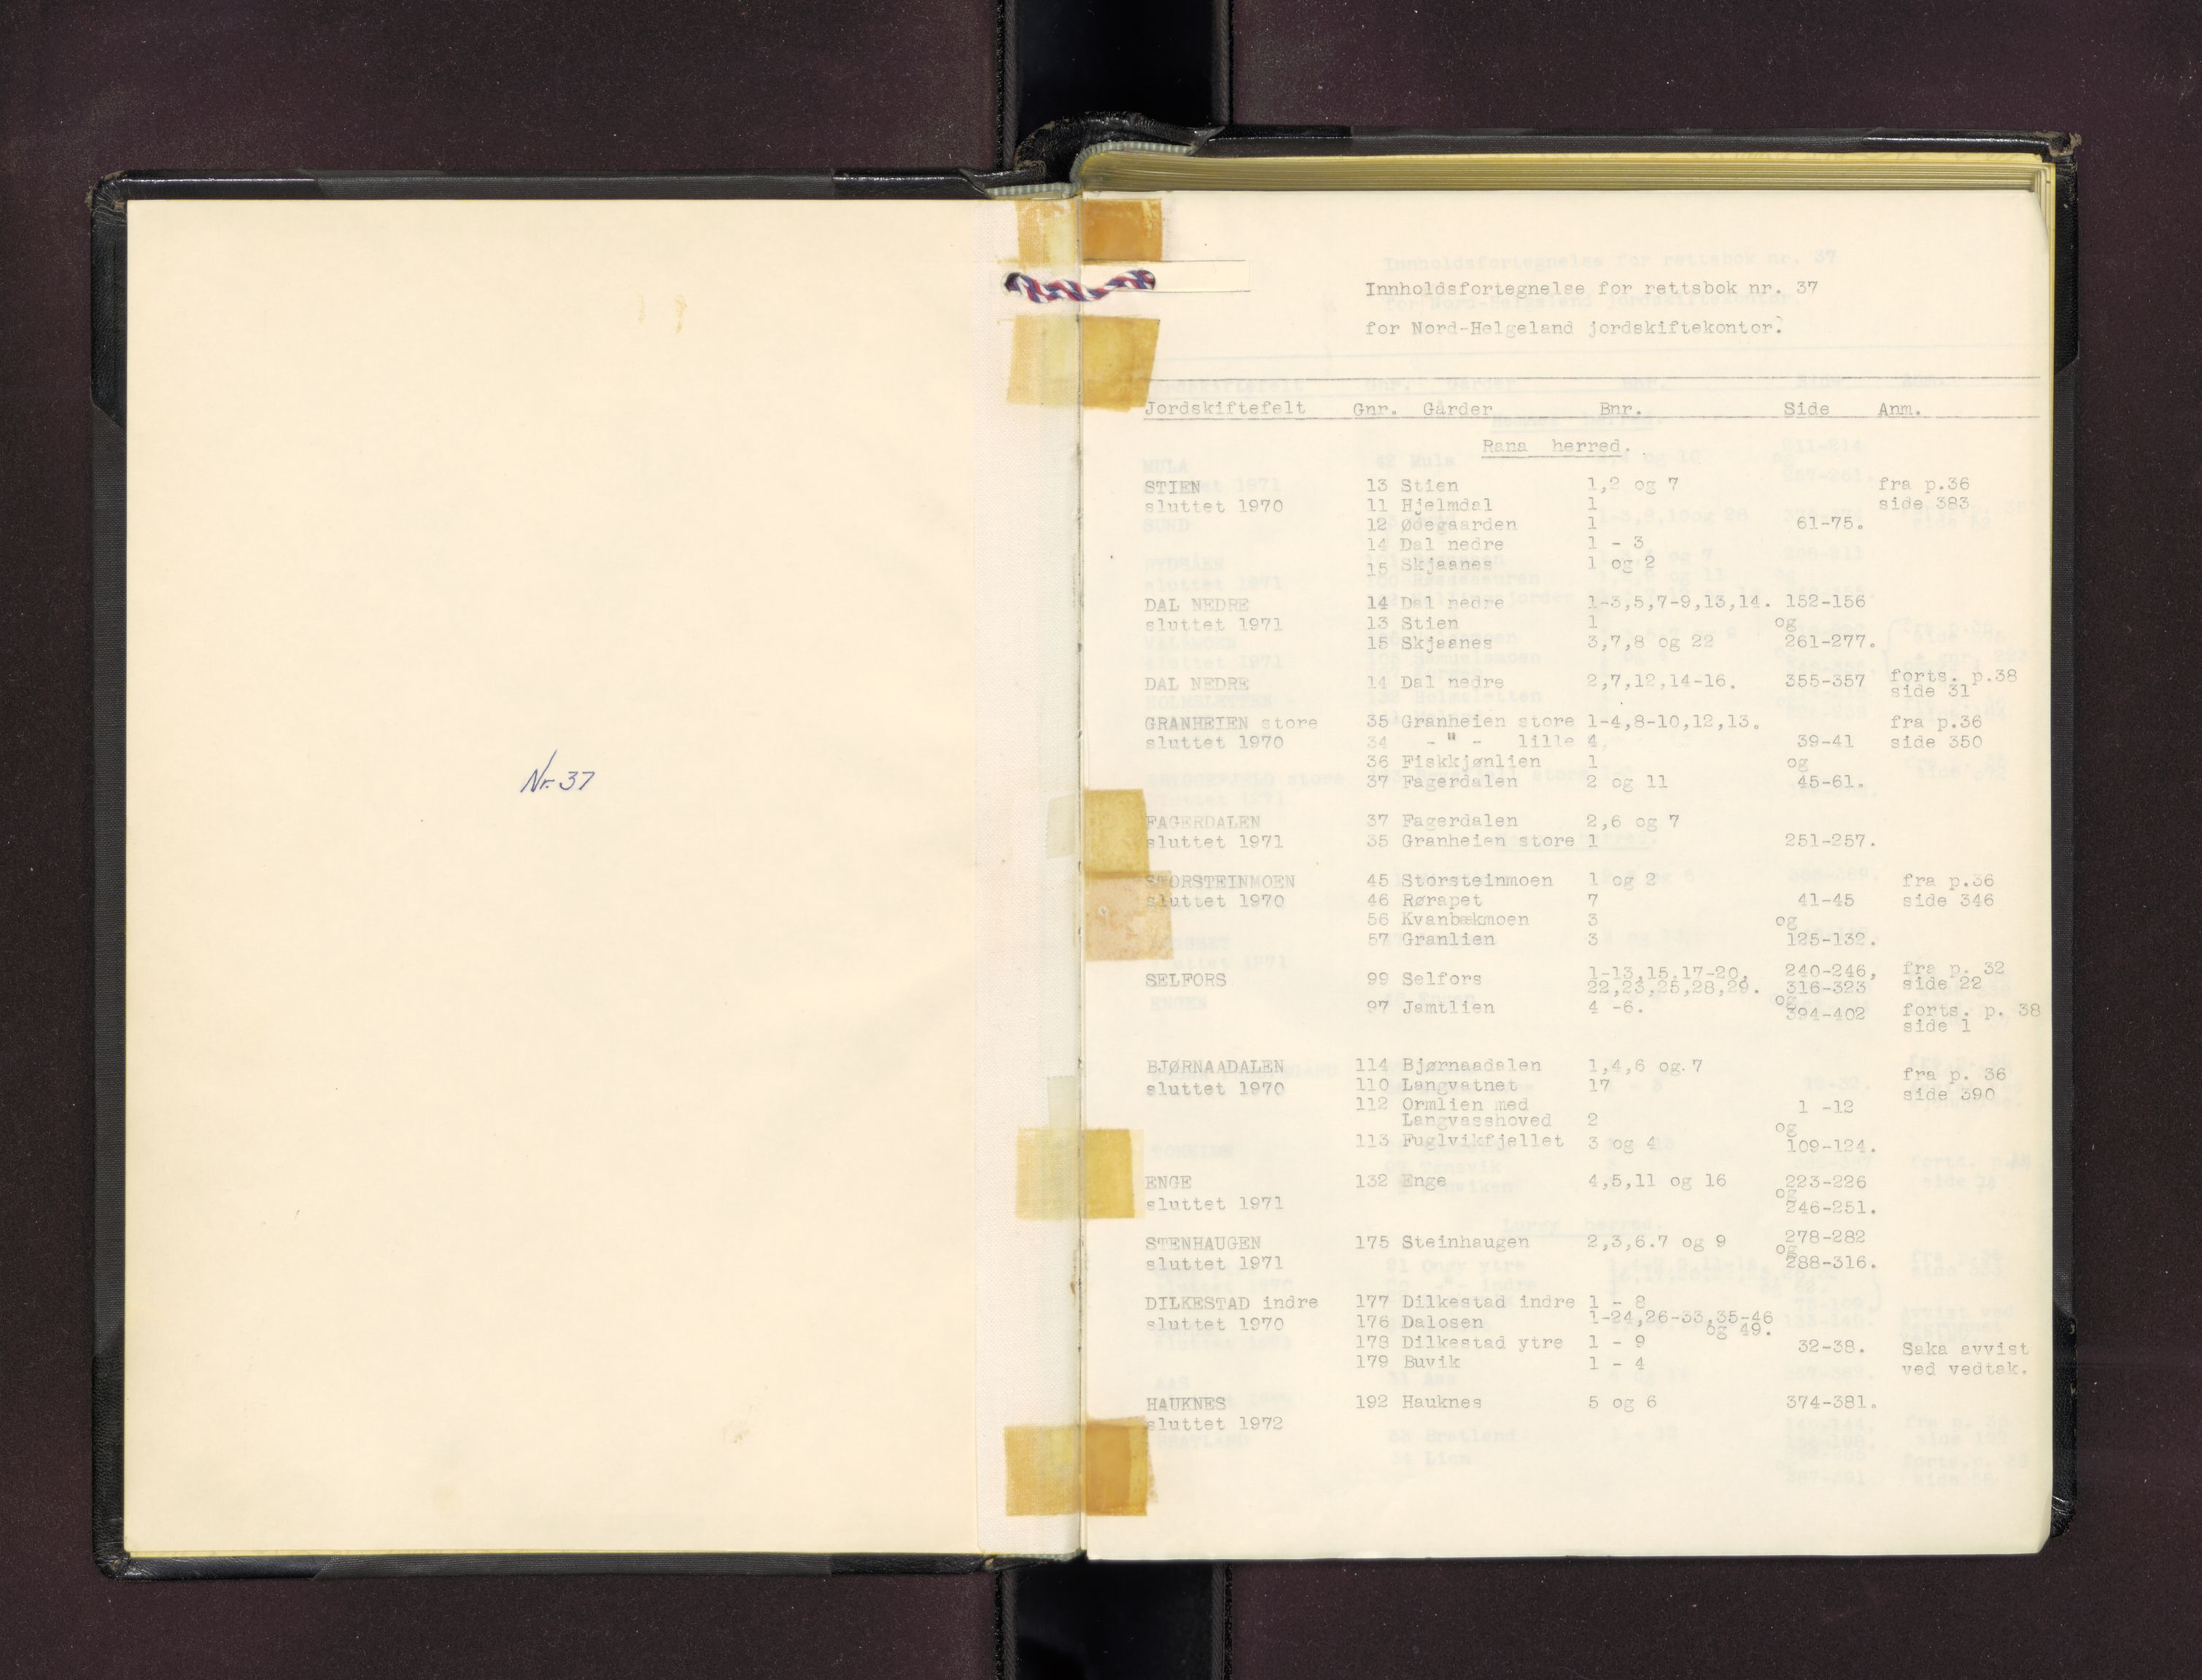 Nr. 37
Innholdsfortegnelse for rettsbok nr. 37
for Nord-Helgeland jordskiftekontor.
Jordskiftefelt Gnr. Gårder Bnr. Side Anm.
Rana herred.
STIEN 13 Stien 1,2 og 7 fra p.36
sluttet 1970 11 Hjelmdal 1 side 383
12 Ødegaarden 1 61-75.
14 Dal nedre 1 - 3
15 Skjaanes 1 og 2
DAL NEDRE 14 Dal nedre 1-3,5,7-9,13,14. 152-156
sluttet 1971 13 Stien 1 og
15 Skjaanes 3,7,8 og 22 261-277.
DAL NEDRE 14 Dal nedre 2,7,12,14-16. 355-357 forts. p.38
side 31
GRANHEIEN store 35 Granheien store 1-4,8-10,12,13. fra p.36
sluttet 1970 34 - " - lille 4. 39-41 side 350
36 Fiskkjønlien 1 og
37 Fagerdalen 2 og 11 45-61.
FAGERDALEN 37 Fagerdalen 2,6 og 7
sluttet 1971 35 Granheien store 1 251-257.
STORSTEINMOEN 45 Storsteinmoen 1 og 2 fra p.36
sluttet 1970 46 Rørapet 7 41-45 side 346
56 Kvanbækmoen 3 og
57 Granlien 3 125-132.
SELFORS 99 Selfors 1-13,15.17-20, 240-246, fra p. 32
22,23,25,28,29. 316-323 side 22
97 Jamtlien 4 -6. og
394-402 forts. p. 38
side 1
BJØRNAADALEN 114 Bjørnaadalen 1,4,6 og.7 fra p. 36
sluttet 1970 110 Langvatnet 17 side 390
112 Ormlien med 1 -12
Langvasshoved 2 og
113 Fuglvikfjellet 3 og 4 109-124.
ENGE 132 Enge 4,5,11 og 16 223-226
og
sluttet 1971 246-251.
STENHAUGEN 175 Steinhaugen 2,3,6.7 og 9 278-282
og
sluttet 1971 288-316.
DILKESTAD indre 177 Dilkestad indre 1 - 8
sluttet 1970 176 Dalosen 1-24,26-33,35-46
og 49.
178 Dilkestad ytre 1 - 9 32-38. Saka avvist
179 Buvik 1 - 4 ved vedtak.
HAUKNES 192 Hauknes 5 og 6 374-381.
sluttet 1972